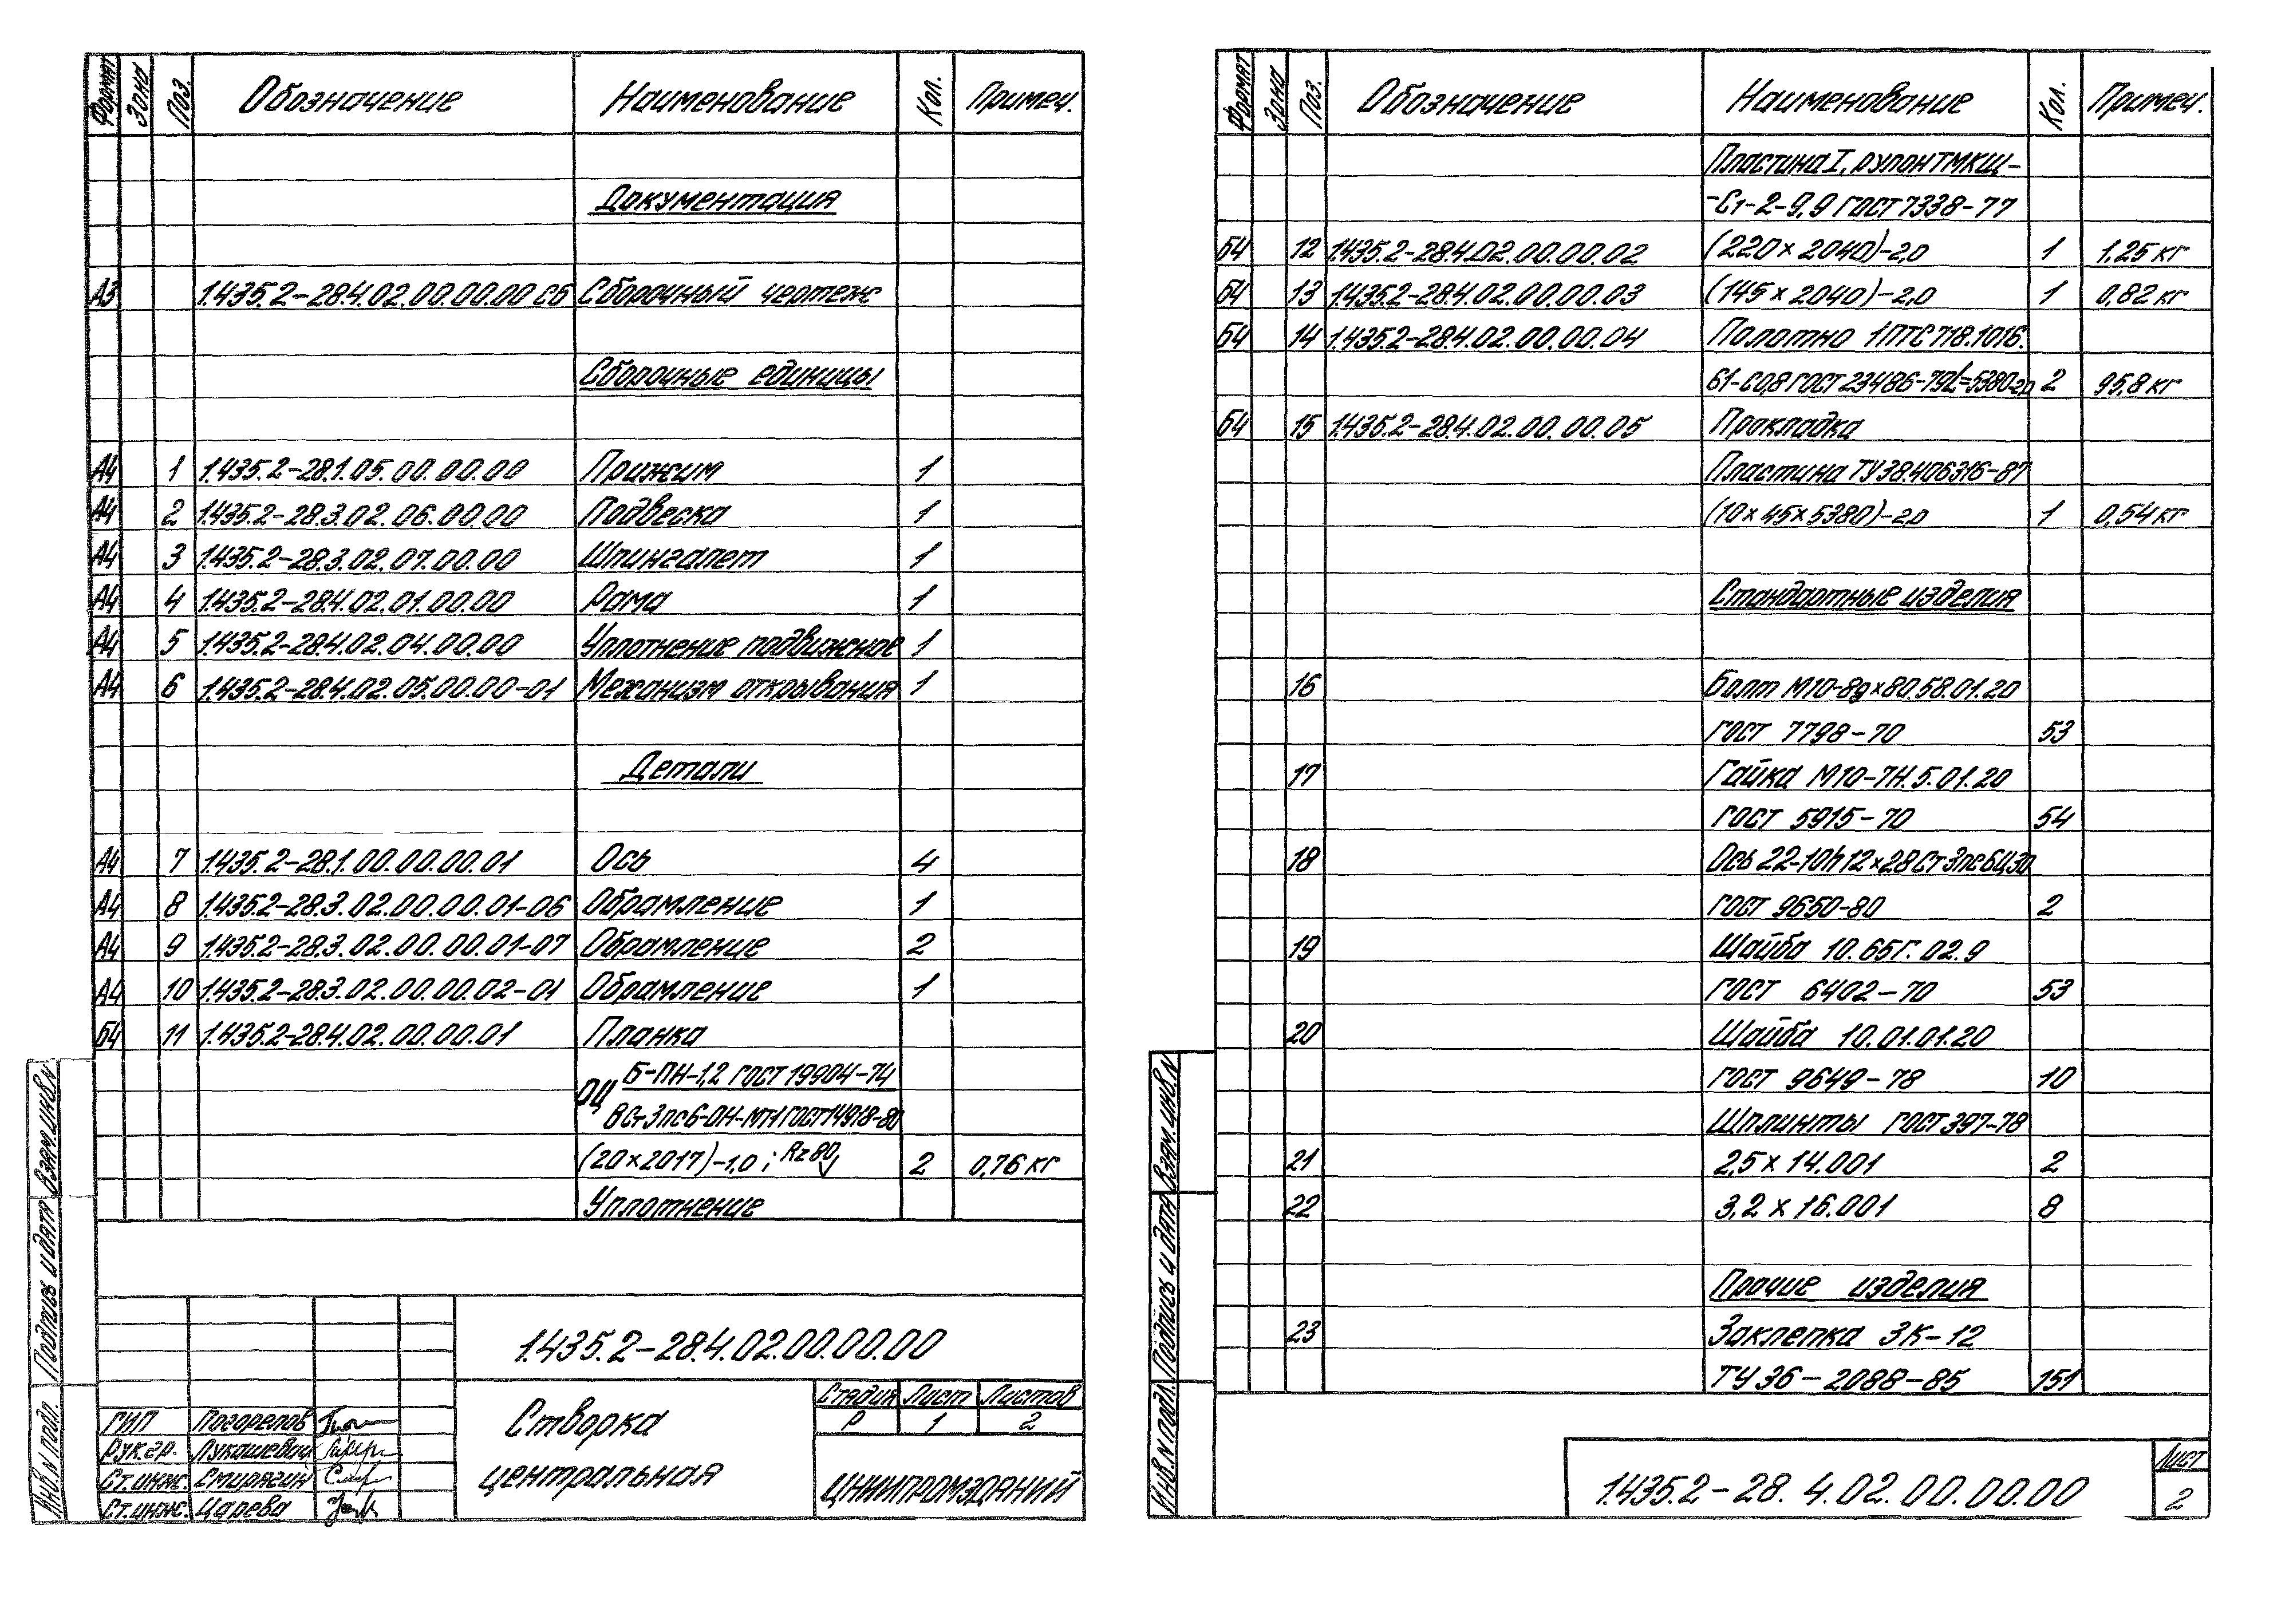 Формат Зона Поз. Обозначение Наименование Кол. Примеч.
Документация
А3 1.435.2-28.4.02.00.00.00 СБ Сборочный чертеж
Сборочные единицы
А4 1 1.435.2-28.1.05.00.00.00 Прижим 1
А4 2 1.435.2-28.3.02.06.00.00 Подвеска 1
А4 3 1.435.2-28.3.02.07.00.00 Шпингалет 1
А4 4 1.435.2-28.4.02.01.00.00 Рама 1
А4 5 1.435.2-28.4.02.04.00.00 Уплотнение подвижное 1
А4 6 1.435.2-28.4.02.05.00.00-01 Механизм открывания 1
Детали
А4 7 1.435.2-28.1.00.00.00.01 Ось 4
А4 8 1.435.2-28.3.02.00.00.01-06 Обрамление 1
А4 9 1.435.2-28.3.02.00.00.01-07 Обрамление 2
А4 10 1.435.2-28.3.02.00.00.02-01 Обрамление 1
Б4 11 1.435.2-28.4.02.00.00.01 Планка
ОЦ Б-ПН-1,2 ГОСТ 19904-74
ВСт3пс6-ОН-МТ1 ГОСТ 14918-80
(20×2017)-1,0; Rz80 2 0,76 кг
Уплотнение
Взам.инв.N
Подпись и дата
Инв.N подл.
1.435.2-28.4.02.00.00.00
ГИП Погорелов
Рук.гр. Лукашевич
Ст.инж. Смирягин
Ст.инж. Царева
Створка
центральная
Стадия Лист Листов
Р 1 2
ЦНИИПРОМЗДАНИЙ
Формат Зона Поз. Обозначение Наименование Кол. Примеч.
Пластина I, рулон ТМКЩ-
-С1-2-9,9 ГОСТ 7338-77
Б4 12 1.435.2-28.4.02.00.00.02 (220×2040)-2,0 1 1,25 кг
Б4 13 1.435.2-28.4.02.00.00.03 (145×2040)-2,0 1 0,82 кг
Б4 14 1.435.2-28.4.02.00.00.04 Полотно 1ПТС 718.1016.
61-С0,8 ГОСТ 23486-79 L=5380-2,0 2 95,8 кг
Б4 15 1.435.2-28.4.02.00.00.05 Прокладка
Пластина ТУ 38.406316-87
(10×45×5380)-2,0 1 0,54 кг
Стандартные изделия
16 Болт М10-8g×80.58.01.20
ГОСТ 7798-70 53
17 Гайка М10-7Н.5.01.20
ГОСТ 5915-70 54
18 Ось 22-10h12×28 Ст3пс6Ц30
ГОСТ 9650-80 2
19 Шайба 10.65Г.02.9
ГОСТ 6402-70 53
20 Шайба 10.01.01.20
ГОСТ 9649-78 10
Шплинты ГОСТ 397-78
21 2,5×14.001 2
22 3,2×16.001 8
Прочие изделия
23 Заклепка ЗК-12
ТУ 36-2088-85 151
Взам.инв.N
Подпись и дата
Инв.N подл.
1.435.2-28.4.02.00.00.00
Лист
2